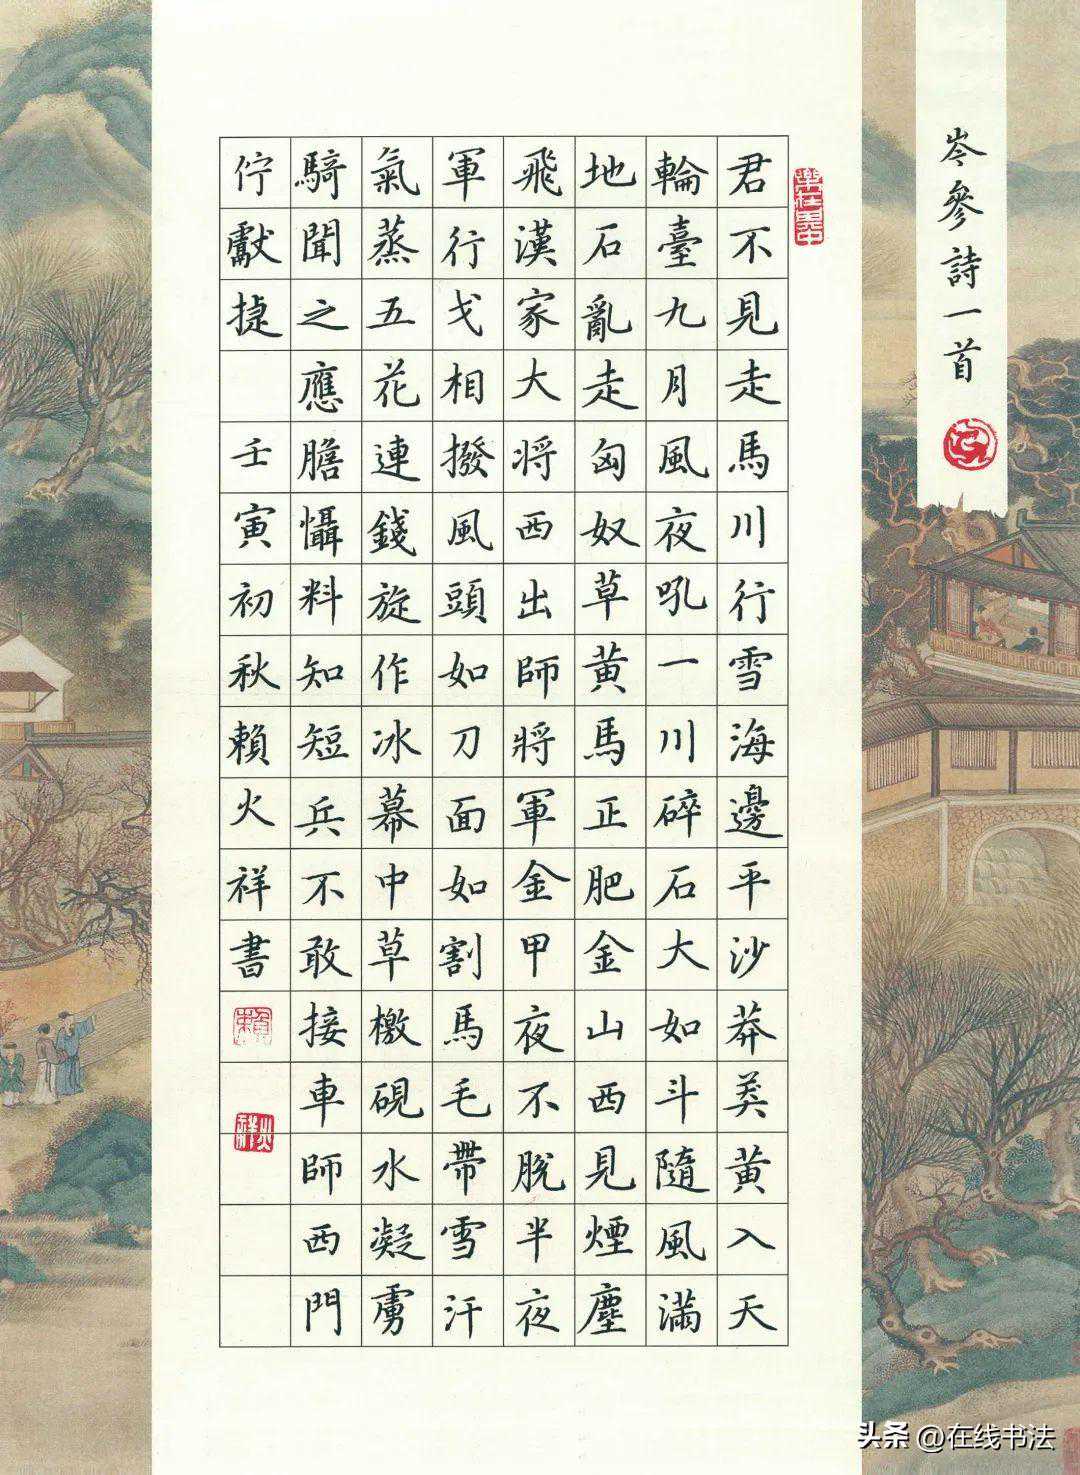 岑參詩一首
君不見走馬川行雪海邊平沙莽莽黃入天
輪臺九月風夜吼一川碎石大如斗隨風滿
地石亂走匈奴草黃馬正肥金山西見煙塵
飛漢家大将西出師將軍金甲夜不脫半夜
軍行戈相撥風頭如刀面如割馬毛帶雪汗
氣蒸五花連錢旋作冰幕中草檄硯水凝虜
騎聞之應膽懾料知短兵不敢接車師西門
佇獻捷 壬寅初秋賴火祥書
火祥
头条 @在线书法